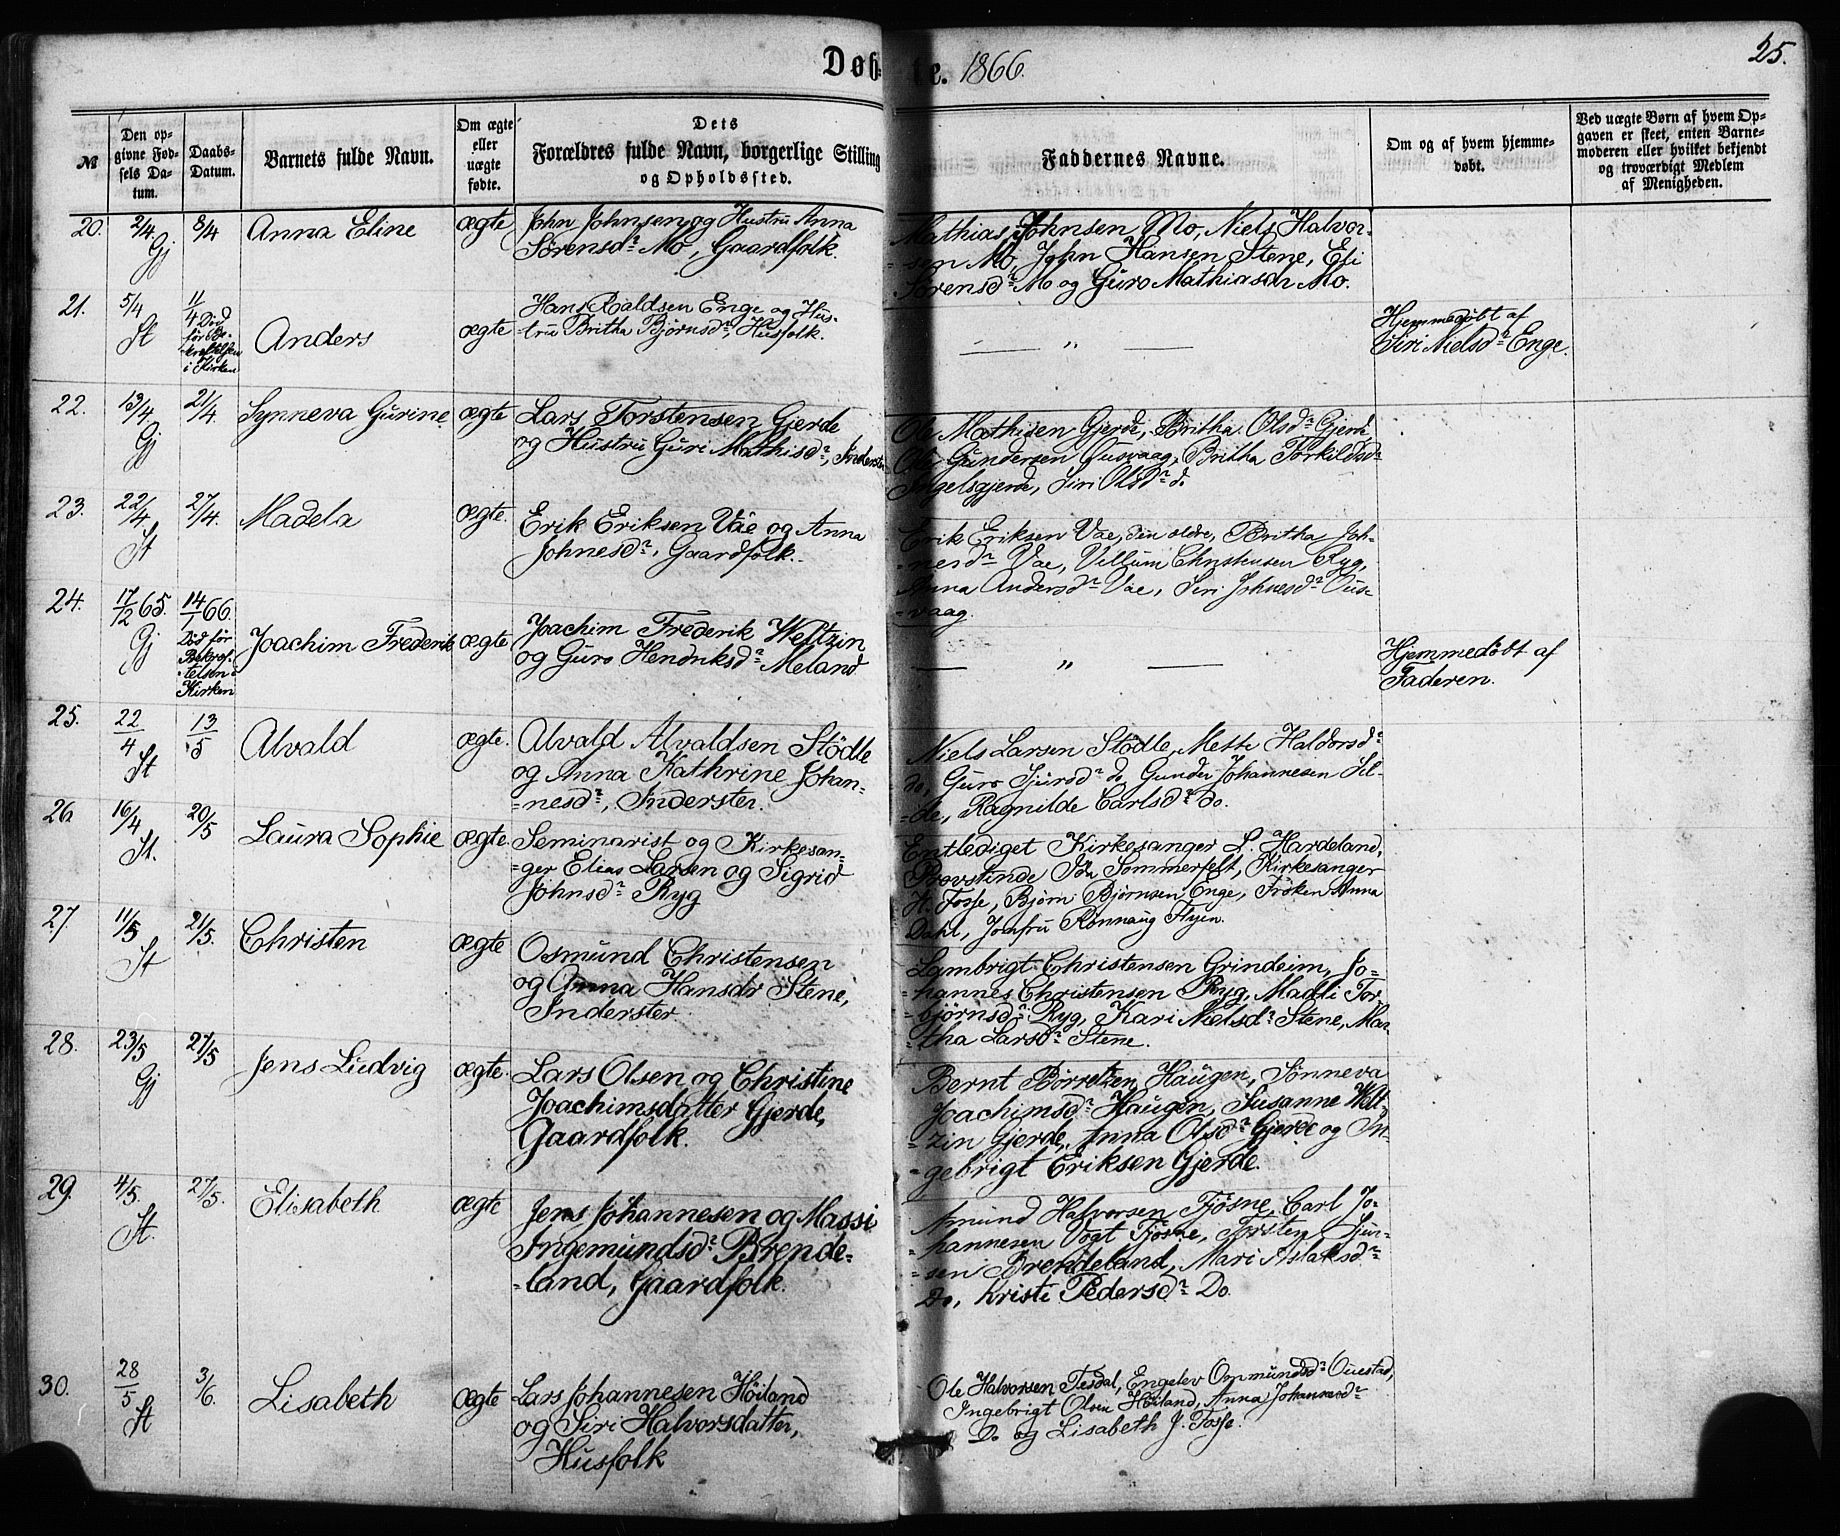 Døbte. 1866.
25.
№
Den opgivne Fødsels Datum.
Daabs-Datum.
Barnets fulde Navn.
Om ægte eller uægte fødte.
Dets Forældres fulde Navn, borgerlige Stilling og Opholdssted.
Faddernes Navne.
Om og af hvem hjemmedøbt.
Ved uægte Børn af hvem Opgaven er skeet, enten Barnemoderen eller hvilket bekjendt og troværdigt Medlem af Menigheden.
20. 2/4 Gj 8/4 Anna Eline ægte
John Johnsen og Hustru Anna
Sørensdr Mo, Gaardfolk.
Mathias Johnsen Mo, Niels Halvor-
-sen Mo, John Hansen Stene, Eli
Sørensdr Mo og Guro Mathiasdr Mo.
21. 5/4 St 11/4 Død
før Be-
-kræftelsen
i Kirken
Anders ægte
Hans Roaldsen Enge og Hus-
-tru Britha Bjørnsdr, Husfolk.
— „ —
Hjemmedøbt af
Siri Nielsdr Enge.
22. 13/4 Gj 21/4 Synneva Gurine ægte
Lars Torstensen Gjerde
og Hustru Guri Mathisdr, Inderster
Ole Mathisen Gjerde, Britha Olsdr Gjerde
Ole Gundersen Ousvaag, Britha Torkildsdr
Ingelsgjerde, Siri Olsdr do
23. 22/4 St 27/4 Madela ægte.
Erik Eriksen Våe og Anna
Johnesdr, Gaardfolk.
Erik Eriksen Vae, den ældre, Britha Joh-
-nesdr Vae, Villum Christensen Ryg,
Anna Andersdr Vae, Siri Johnesdr Ous-
-vaag.
24. 17/12 65. Gj 14/1 66.
Død før
Bekræf-
-telsen i
Kirken
Joachim Frederik ægte
Joachim Frederik Weltzin
og Guro Hendriksdr Meland
— „ —
Hjemmedøbt af
Faderen.
25. 22/4 St 13/5 Alvald ægte.
Alvald Alvaldsen Stödle
og Anna Kathrine Johan-
-nesdr, Inderster.
Niels Larsen Stödle, Mette Haldorsdr
do, Guro Sjursdr do, Gunder Johannesen Sil-
-de, Ragnilde Carlsdr do.
26 16/4 St. 20/5 Laura Sophie ægte.
Seminarist og Kirkesan-
-ger Elias Larsen og Sigrid
Johnsdr Ryg
Entlediget Kirkesanger L. Hardeland,
Provstinde Ida Sommerfelt, Kirkesanger
H. Fosse, Bjørn Bjørnsen Enge, Frøken Anna
Dahl, Jomfru Rønnaug Flyen.
27. 11/5 St 21/5. Christen ægte
Osmund Christensen
og Anna Hansdr Stene,
Inderster.
Lambrigt Christensen Grindeim, Jo-
-hannes Christensen Ryg, Madli Tor-
-bjørnsdr Ryg, Kari Nielsdr Stene, Mar-
-tha Larsdr Stene.
28. 23/5 Gj 27/5 Jens Ludvig ægte.
Lars Olsen og Christine
Joachimsdatter Gjerde,
Gaardfolk.
Bernt Børretzen Haugen, Sønneva
Joachimsdr Haugen, Susanne Welt-
-zin Gjerde, Anna Olsdr Gjerde og In-
-gebrigt Eriksen Gjerde.
29. 4/5. St. 27/5. Elisabeth ægte
Jens Johannesen og Massi
Ingemundsdr Brende-
-land, Gaardfolk.
Amund Halvorsen Tjøsne, Carl Jo-
-hannesen Vogt Tjøsne, Torsten Sjur-
-sen Brendeland, Mari Aslaksdr
Do, Kristi Pedersdr Do.
30. 28/5 St 3/6. Lisabeth ægte
Lars Johannesen Höiland
og Siri Halvorsdatter,
Husfolk
Ole Halvorsen Tesdal, Engelev Ommundsdr Ouestad,
Ingebrigt Olsen Höiland, Anna Johannesdr
Do og Lisabeth J. Fosse.